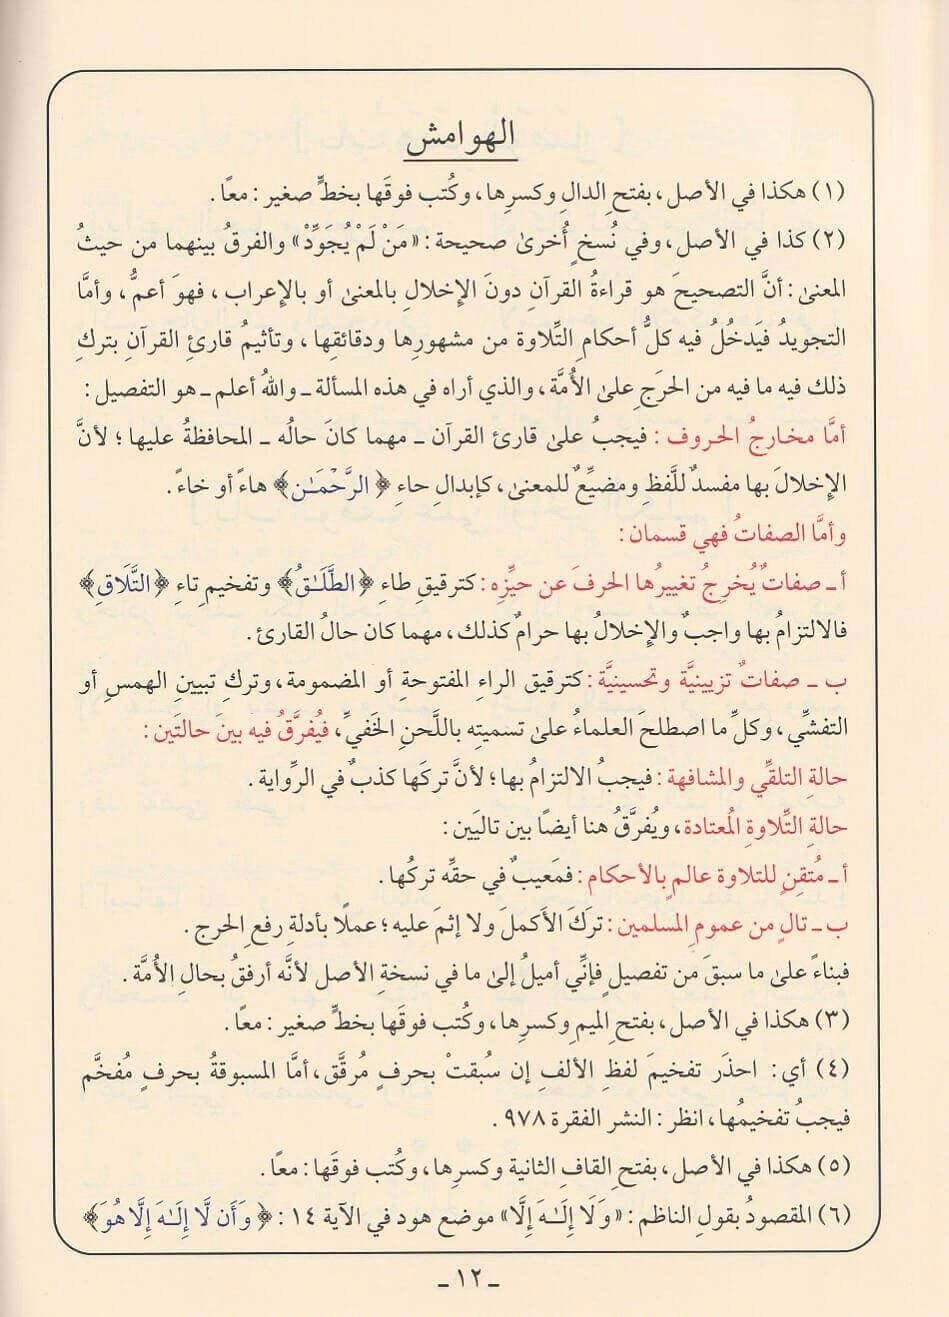 الهوامش
(١) هكذا في الأصل، بفتحِ الدالِ وكسرِها، وكُتب فوقَها بخطٍّ صغير: معًا.
(٢) كذا في الأصل، وفي نُسخٍ أُخرىٰ صحيحة: «مَنْ لَمْ يُجَوِّدْ» والفرقُ بينهما من حيثُ
المعنىٰ: أنَّ التصحيحَ هو قراءةُ القرآنِ دونَ الإخلالِ بالمعنىٰ أو بالإعراب، فهوَ أعمُّ، وأمَّا
التجويدُ فيَدخُلُ فيه كلُّ أحكامِ التِّلاوة من مشهورِها ودقائقِها، وتأثيمُ قارئِ القرآنِ بتركِ
ذلك فيه ما فيه من الحرَجِ علىٰ الأُمَّة، والذي أراه في هذه المسألة ـ واللهُ أعلم ـ هو التفصيل:
أمَّا مخارجُ الحروف: فيجبُ علىٰ قارئِ القرآن ـ مهما كانَ حالُه ـ المحافظةُ عليها؛ لأنَّ
الإخلالَ بها مفسدٌ للَّفظِ ومضيِّعٌ للمعنىٰ، كإبدالِ حاءِ ﴿الرَّحْمَـٰن﴾ هاءً أو خاءً.
وأمَّا الصفاتُ فهي قسمان:
أ ـ صفاتٌ يُخرِجُ تغييرُها الحرفَ عن حيِّزِه: كترقيقِ طاءِ ﴿الطَّلَـٰقُ﴾ وتفخيمِ تاءِ ﴿التَّلَاقِ﴾
فالالتزامُ بها واجبٌ والإخلالُ بها حرامٌ كذلك، مهما كان حالُ القارئ.
ب ـ صفاتٌ تزيينيَّة وتحسينيَّة: كترقيق الراءِ المفتوحةِ أو المضمومة، وتركِ تبيينِ الهمسِ أو
التفشِّي، وكلِّ ما اصطلحَ العلماءُ علىٰ تسميتِه باللَّحنِ الخَفيِّ، فيُفرَّقُ فيه بينَ حالتَين:
حالةِ التلقِّي والمشافهة: فيجبُ الالتزامُ بها؛ لأنَّ تركَها كذبٌ في الرِّواية.
حالةِ التِّلاوةِ المُعتادة، ويُفرَّقُ هنا أيضًا بين تاليَين:
أ ـ مُتقِنٍ للتلاوة عالمٍ بالأحكام: فمَعيبٌ في حقِّه تركُها.
ب ـ تالٍ من عمومِ المسلمين: ترَكَ الأكملَ ولا إثمَ عليه؛ عملًا بأدلةِ رفعِ الحرج.
فبناءً علىٰ ما سبقَ من تفصيلٍ فإنِّي أميلُ إلىٰ ما في نسخةِ الأصل لأنَّه أرفقُ بحالِ الأُمَّة.
(٣) هكذا في الأصل، بفتحِ الميمِ وكسرِها، وكُتب فوقَها بخطٍّ صغير: معًا.
(٤) أي: احذَر تفخيمَ لفظِ الألفِ إن سُبقتْ بحرفٍ مُرقَّق، أمَّا المسبوقةُ بحرفٍ مُفخَّم
فيجبُ تفخيمُها، انظر: النشر الفقرة ٩٧٨.
(٥) هكذا في الأصل، بفتحِ القافِ الثانيةِ وكسرِها، وكُتب فوقَها: معًا.
(٦) المقصودُ بقولِ الناظم: «وَلَا إِلَـٰهَ إِلَّا» موضع هود في الآية ١٤: ﴿وَأَن لَّا إِلَـٰهَ إِلَّا هُوَ﴾
ـ ١٢ ـ